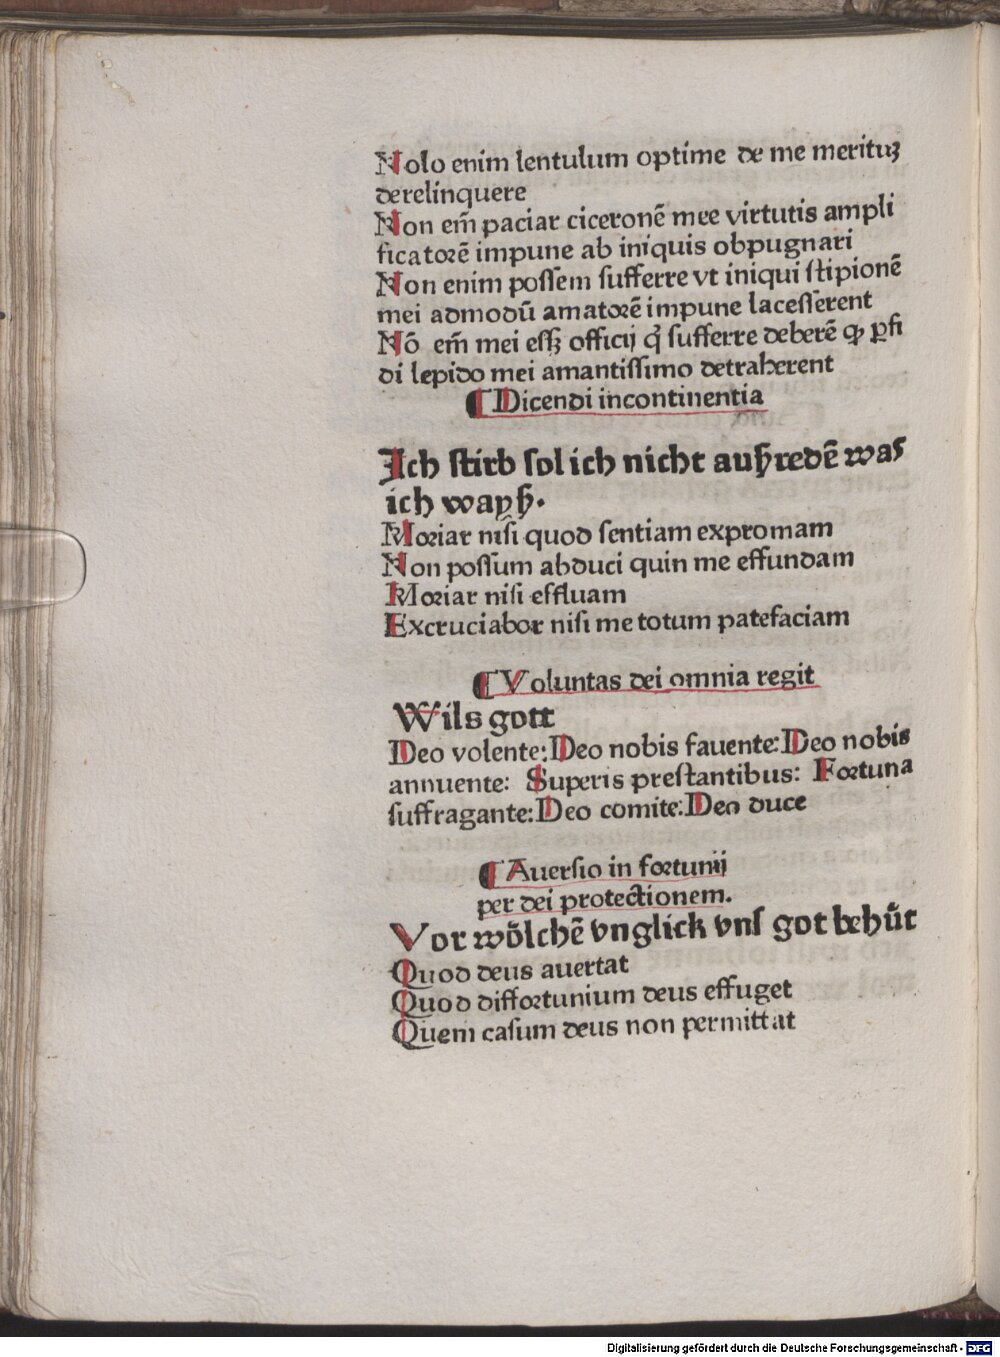 Nolo enim lentulum optime de me merituꝫ
derelinquere
Non em̄ paciar ciceronē mee virtutis ampli
ficatorē impune ab iniquis obpugnari
Non enim poſſem ſufferre vt iniqui ſtipionē
mei admodū amatorē impune laceſſerent
Nō em̄ mei eſſꝫ officij ꝙ ſufferre deberē ꝙ ꝑfi
di lepido mei amantiſſimo detraherent
¶ Dicendi incontinentia
Ich ſtirb ſol ich nicht auſzredē was
ich wayſz.
Moriar niſi quod ſentiam expromam
Non poſſum abduci quin me effundam
Moriar niſi effluam
Excruciabor niſi me totum patefaciam
¶ Voluntas dei omnia regit
Wils gott
Deo volente: Deo nobis fauente: Deo nobis
annuente: Superis preſtantibus: Fortuna
ſuffragante: Deo comite: Deo duce
¶ Auerſio in fortunij
per dei protectionem.
Vor wőlchē vnglick vnſ got behűt
Quod deus auertat
Quod diffortunium deus effuget
Quem caſum deus non permittat
Digitalisierung gefördert durch die Deutsche Forschungsgemeinschaft - DFG